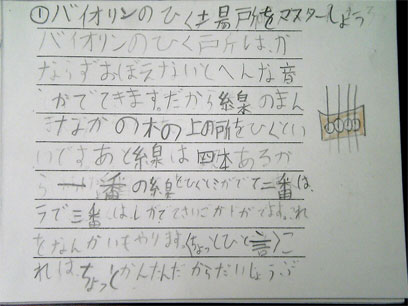 ①バイオリンのひく場所をマスターしよう
バイオリンのひく所は、か
ならずおぼえないとへんな音
がでてきます。だから線のまん
きなかの木の上の所をひくとい
いですあと線は四本あるか
ら一番の線をひくとミがでて二番は、
ラで三番はレがでてさいごがソがでます。これ
をなんかいもやります。(ちょっとひと言)こ
れは、ちょっとかんたんだからだいじょうぶ